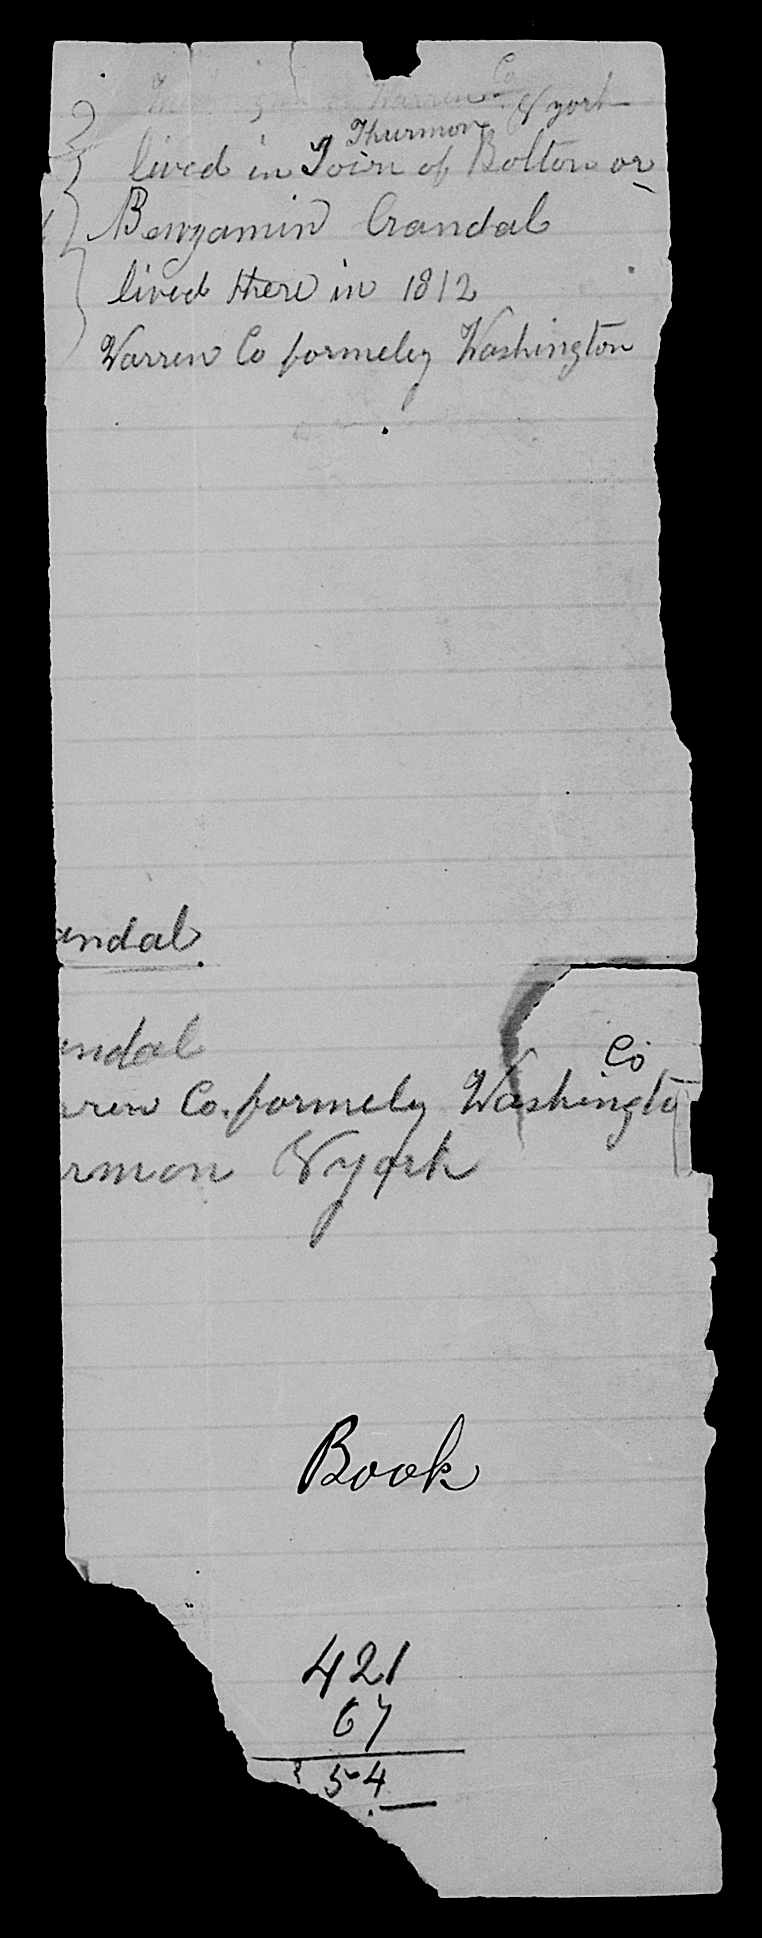 Warren Co N york
Thurmon
lived in Town of Bolton or
Benjamin Crandal
lived there in 1812
Warren Co formeley Washington
andal
andal
Co
rren Co. formeley Washingto
rmon N york
Book
421
67
354